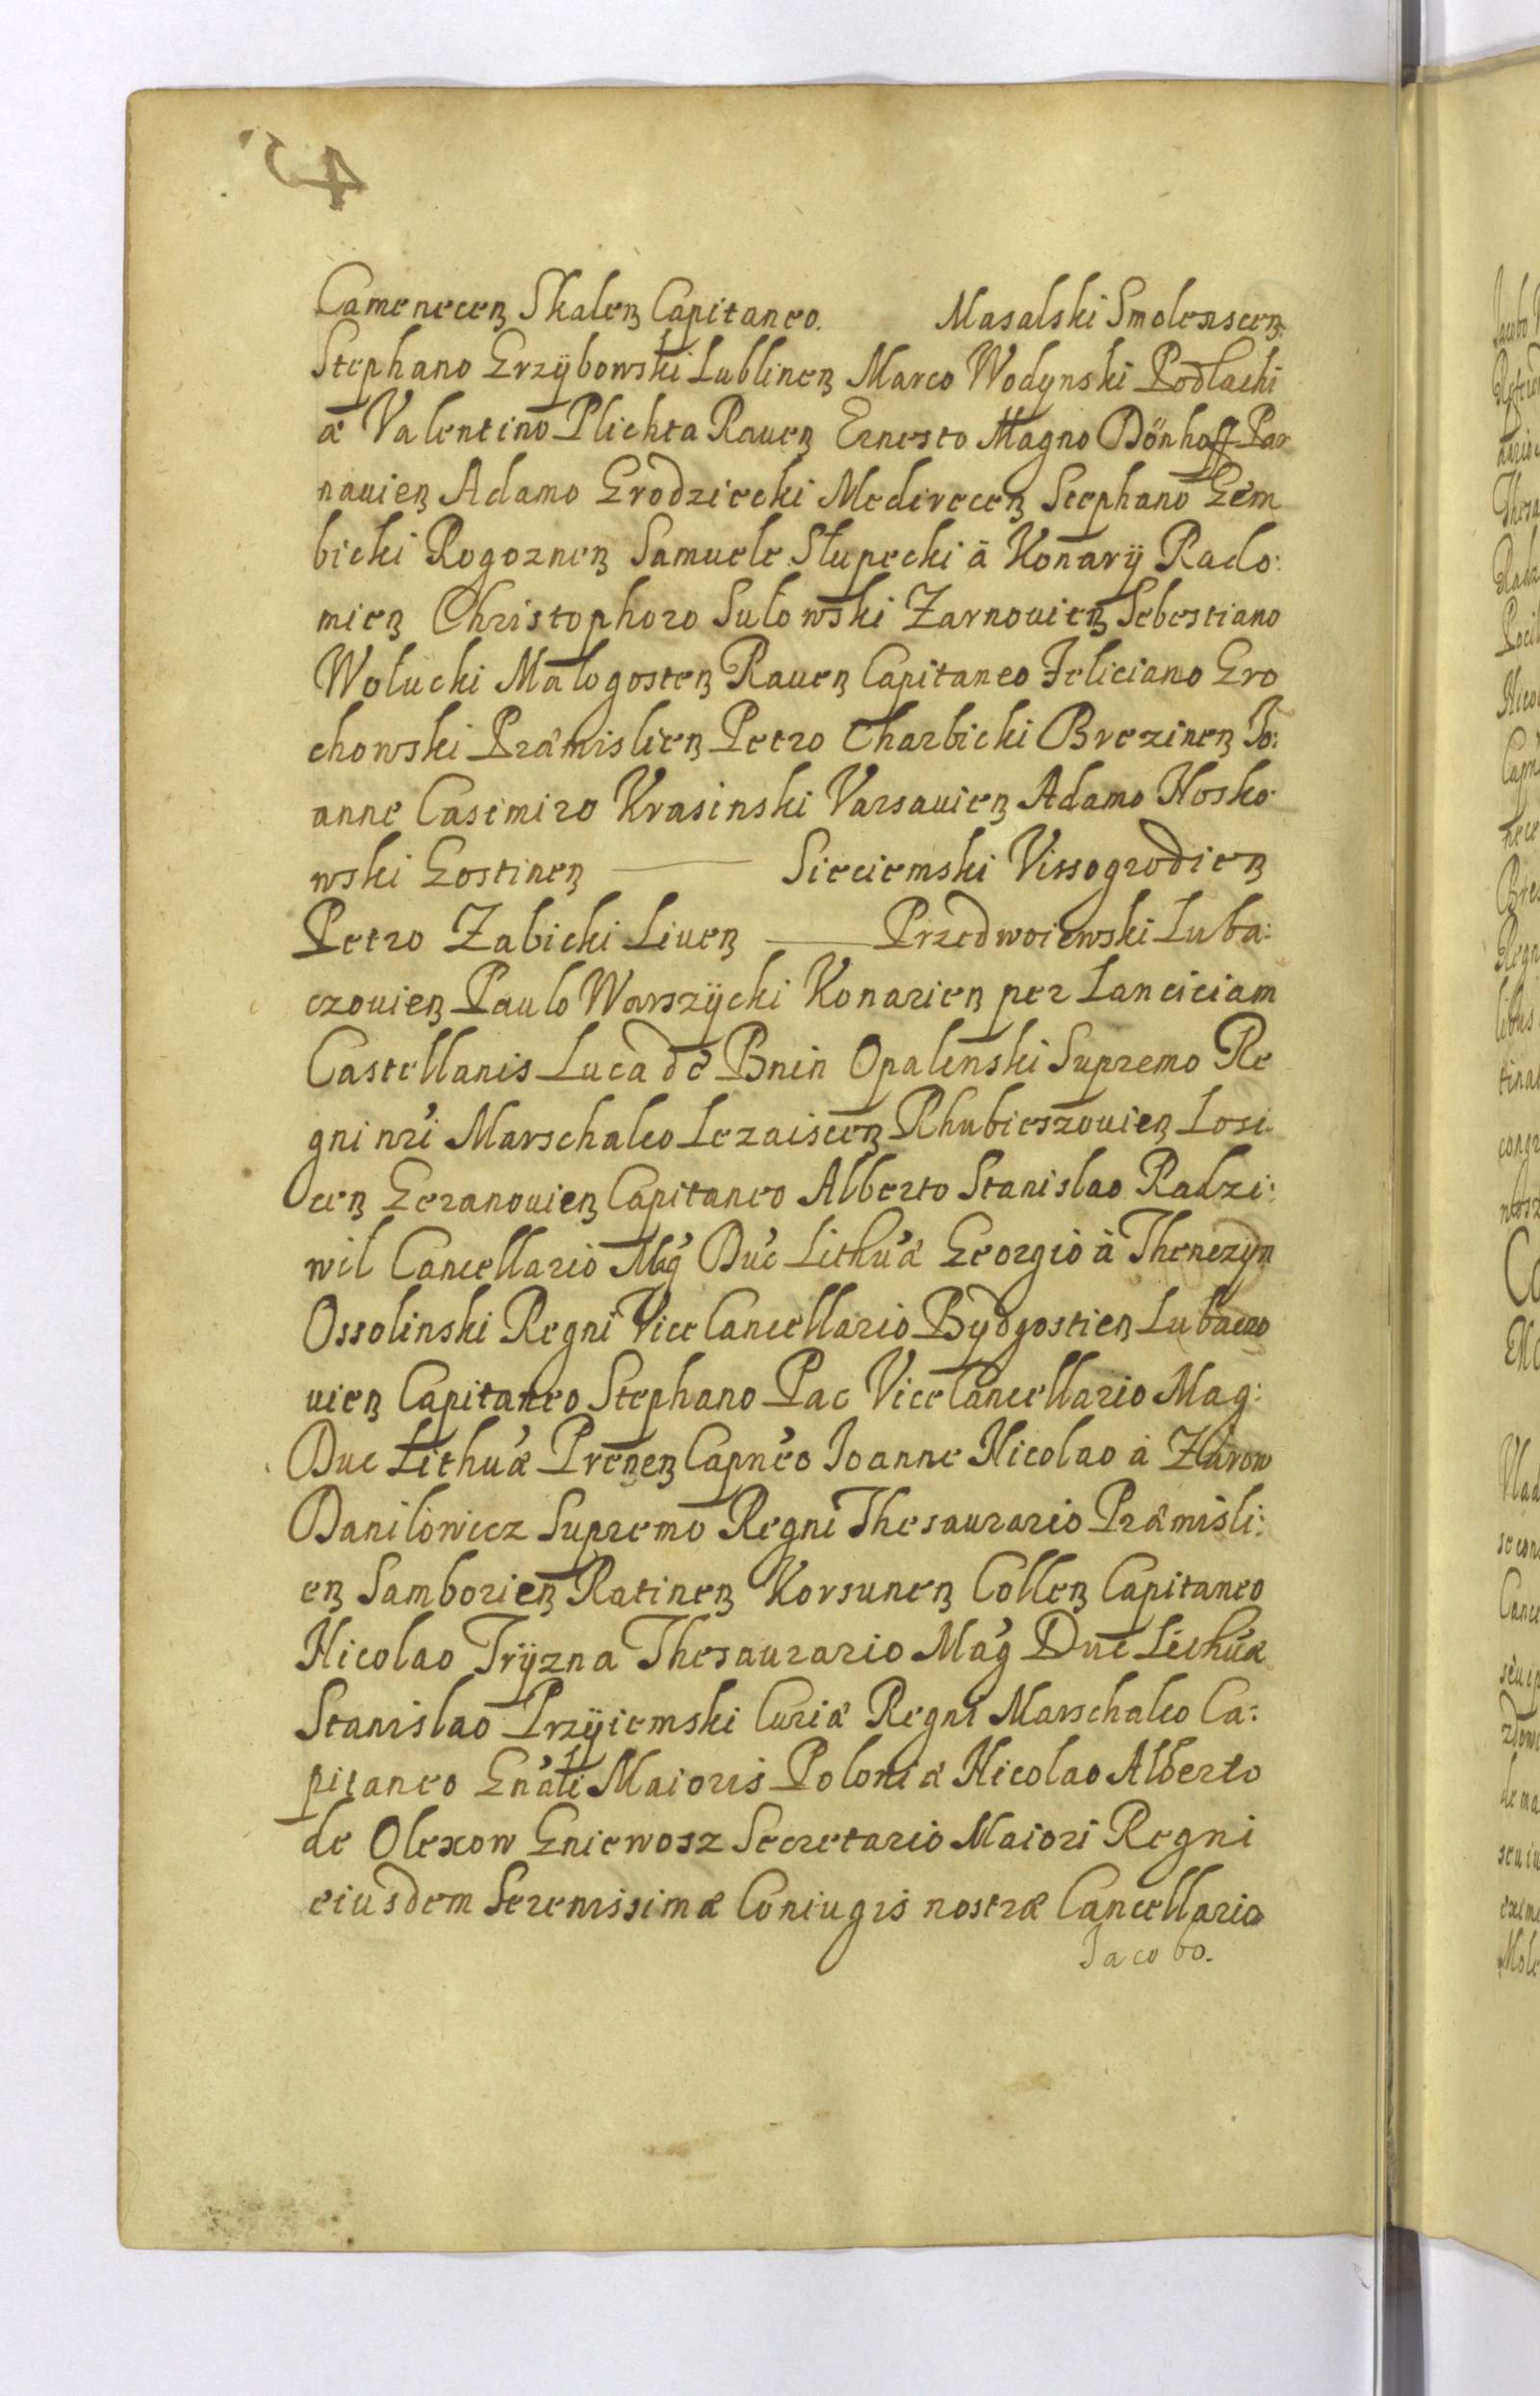 45
Camenecen Skalen Capitaneo. Masalski Smolenscen.
Stephano Grzÿbowski Lublinen Marco Wodynski Podlachi
æ Valentino Plichta Rauen Ernesto Magno Dönhoff Par
nauien Adamo Grodziecki Medirecen Stephano Gem
bicki Rogoznen Samuele Słupecki à Konarÿ Rado:
mien Christophoro Sułowski Zarnouien Sebestiano
Wołucki Małogosten Rauen Capitaneo Feliciano Gro
chowski Præmislien Petro Charbicki Brezinen Io:
anne Casimiro Krasinski Varsauien Adamo Nosko
wski Gostinen — Sieciemski Vissogrodien
Petro Zabicki Liuen — Przedwoiewski Luba:
czouien Paulo Warszÿcki Konarien per Lanciciam
Castellanis Luca de Bnin Opalenski Supremo Re
gni nri Marschalco Lezaiscen Rhubieszouien Losi
cen Geranouien Capitaneo Alberto Stanislao Radzi:
wil Cancellario Mag Duc Lithuæ Georgio à Thenczyn
Ossolinski Regni Vice Cancellario Bydgostien Lubaczo
uien Capitaneo Stephano Pac Vice Cancellario Mag:
Duc Lithuæ Prenen Capneo Ioanne Nicolao à Zurow
Danilowicz Supremo Regni Thesaurario Præmisli:
en Samborien Ratinen Korsunen Collen Capitaneo
Nicolao Trÿzna Thesaurario Mag Duc Lithuæ
Stanislao Przÿiemski Curiæ Regni Marschalco Ca:
pitaneo Gnali Maioris Poloniæ Nicolao Alberto
de Olexow Gniewosz Secretario Maiori Regni
eiusdem Serenissimæ Coniugis nostræ Cancellario
Jacobo.